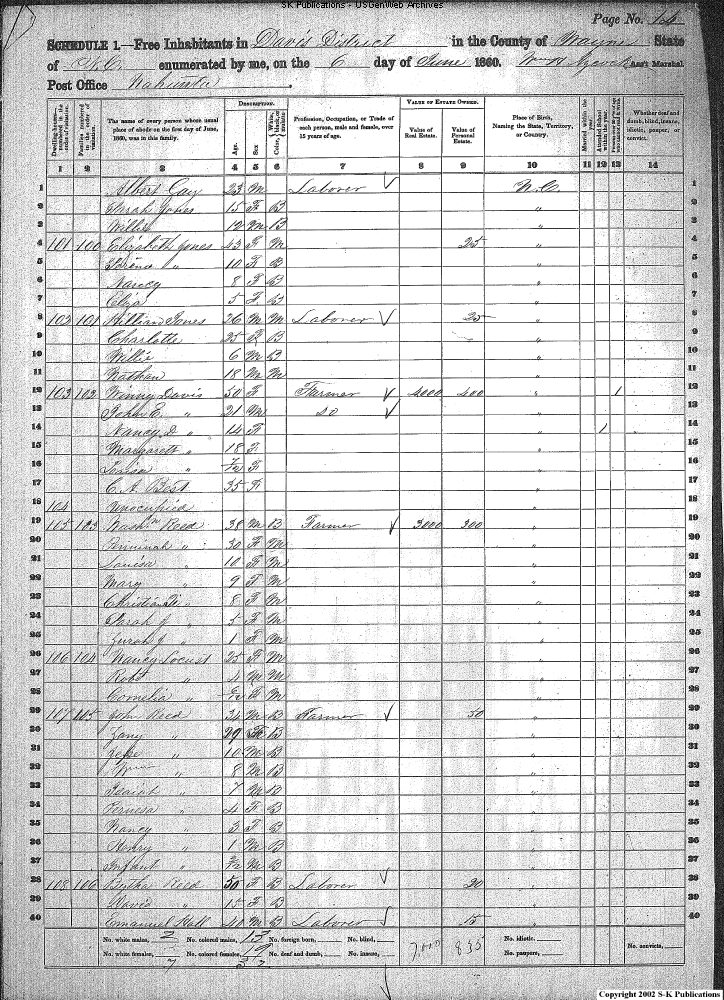 SK Publications - USGenWeb Archives
Page No. 14
SCHEDULE 1.—Free Inhabitants in Davis District in the County of Wayne State
of N.C. enumerated by me, on the 6 day of June 1860. Ass't Marshal
Post Office Nahunta
Dwelling-houses—numbered in the order of visitation.
Families numbered in the order of visitation.
The name of every person whose usual place of abode on the first day of June, 1860, was in this family.
DESCRIPTION.
Age.
Sex
Color, White, black, or mulatto
Profession, Occupation, or Trade of each person, male and female, over 15 years of age.
VALUE OF ESTATE OWNED.
Value of Real Estate.
Value of Personal Estate.
Place of Birth, Naming the State, Territory, or Country.
Married within the year.
Attended School within the year.
Whether deaf and dumb, blind, insane, idiotic, pauper, or convict.
1 2 3 4 5 6 7 8 9 10 11 12 13 14
1 Albert Gay 23 M Laborer N.C. 1
2 Sarah Jones 15 F B " 2
3 Willie 12 M B " 3
4 101 100 Elizabeth Jones 43 F M 25 " 4
5 " 10 F B " 5
6 Nancy 8 F B " 6
7 Eliza 5 F B " 7
8 102 101 William Jones 26 M M Laborer 25 " 8
9 Charlotte 25 F B " 9
10 Willie 6 M B " 10
11 Nathan 18 M M " 11
12 103 102 Winny Davis 50 F Farmer 4000 400 " 1 12
13 John E. " 21 M do " 13
14 Nancy D " 14 F " 1 14
15 Margarett " 18 F " 15
16 Louisa " 7/12 F " 16
17 C. A. Best 35 F " 17
18 104 Unocupied 18
19 105 103 Wash'n Reed 38 M B Farmer 3000 300 " 19
20 " 30 F M " 20
21 Louisa " 10 F M " 21
22 Mary " 9 F M " 22
23 " 8 F M " 23
24 Sarah J " 5 F M " 24
25 J " 1 F M " 25
26 106 104 Nancy Locust 25 F M " 26
27 Robt " 4 M M " 27
28 Cornelia " F M " 28
29 107 105 John Reed 34 M B Farmer 50 " 29
30 Zany " 29 F B " 30
31 " 10 M B " 31
32 " 8 M B " 32
33 Isaiah " 7 M B " 33
34 " 4 F B " 34
35 Nancy " 3 F B " 35
36 Henry " 1 M B " 36
37 Infant " M B " 37
28 108 106 Bytha Reed 50 F B Laborer 20 " 38
29 David " 15 F B " 39
40 Emanuel Hall 40 M B Laborer 15 " 40
No. white males, 2 No. colored males, 13 No. foreign born, No. blind, 7,000 835 No. idiotic, No. convicts,
No. white females, No. colored females, 19 No. deaf and dumb, No. insane, No. paupers,
7 32
Copyright 2002 S-K Publications